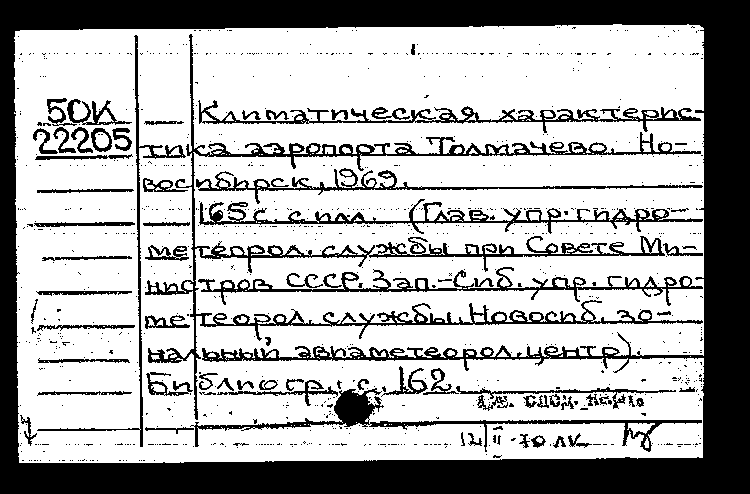 50К
22205
Климатическая характерис-
тика аэропорта Толмачево. Но-
восибирск, 1969.
165 с. с илл. (Глав. упр. гидро-
метеорол. службы при Совете Ми-
нистров СССР. Зап.-Сиб. упр. гидро-
метеорол. службы. Новосиб. зо-
нальный авиаметеорол. центр).
Библиогр.: с. 162.
12/II-70 ЛК